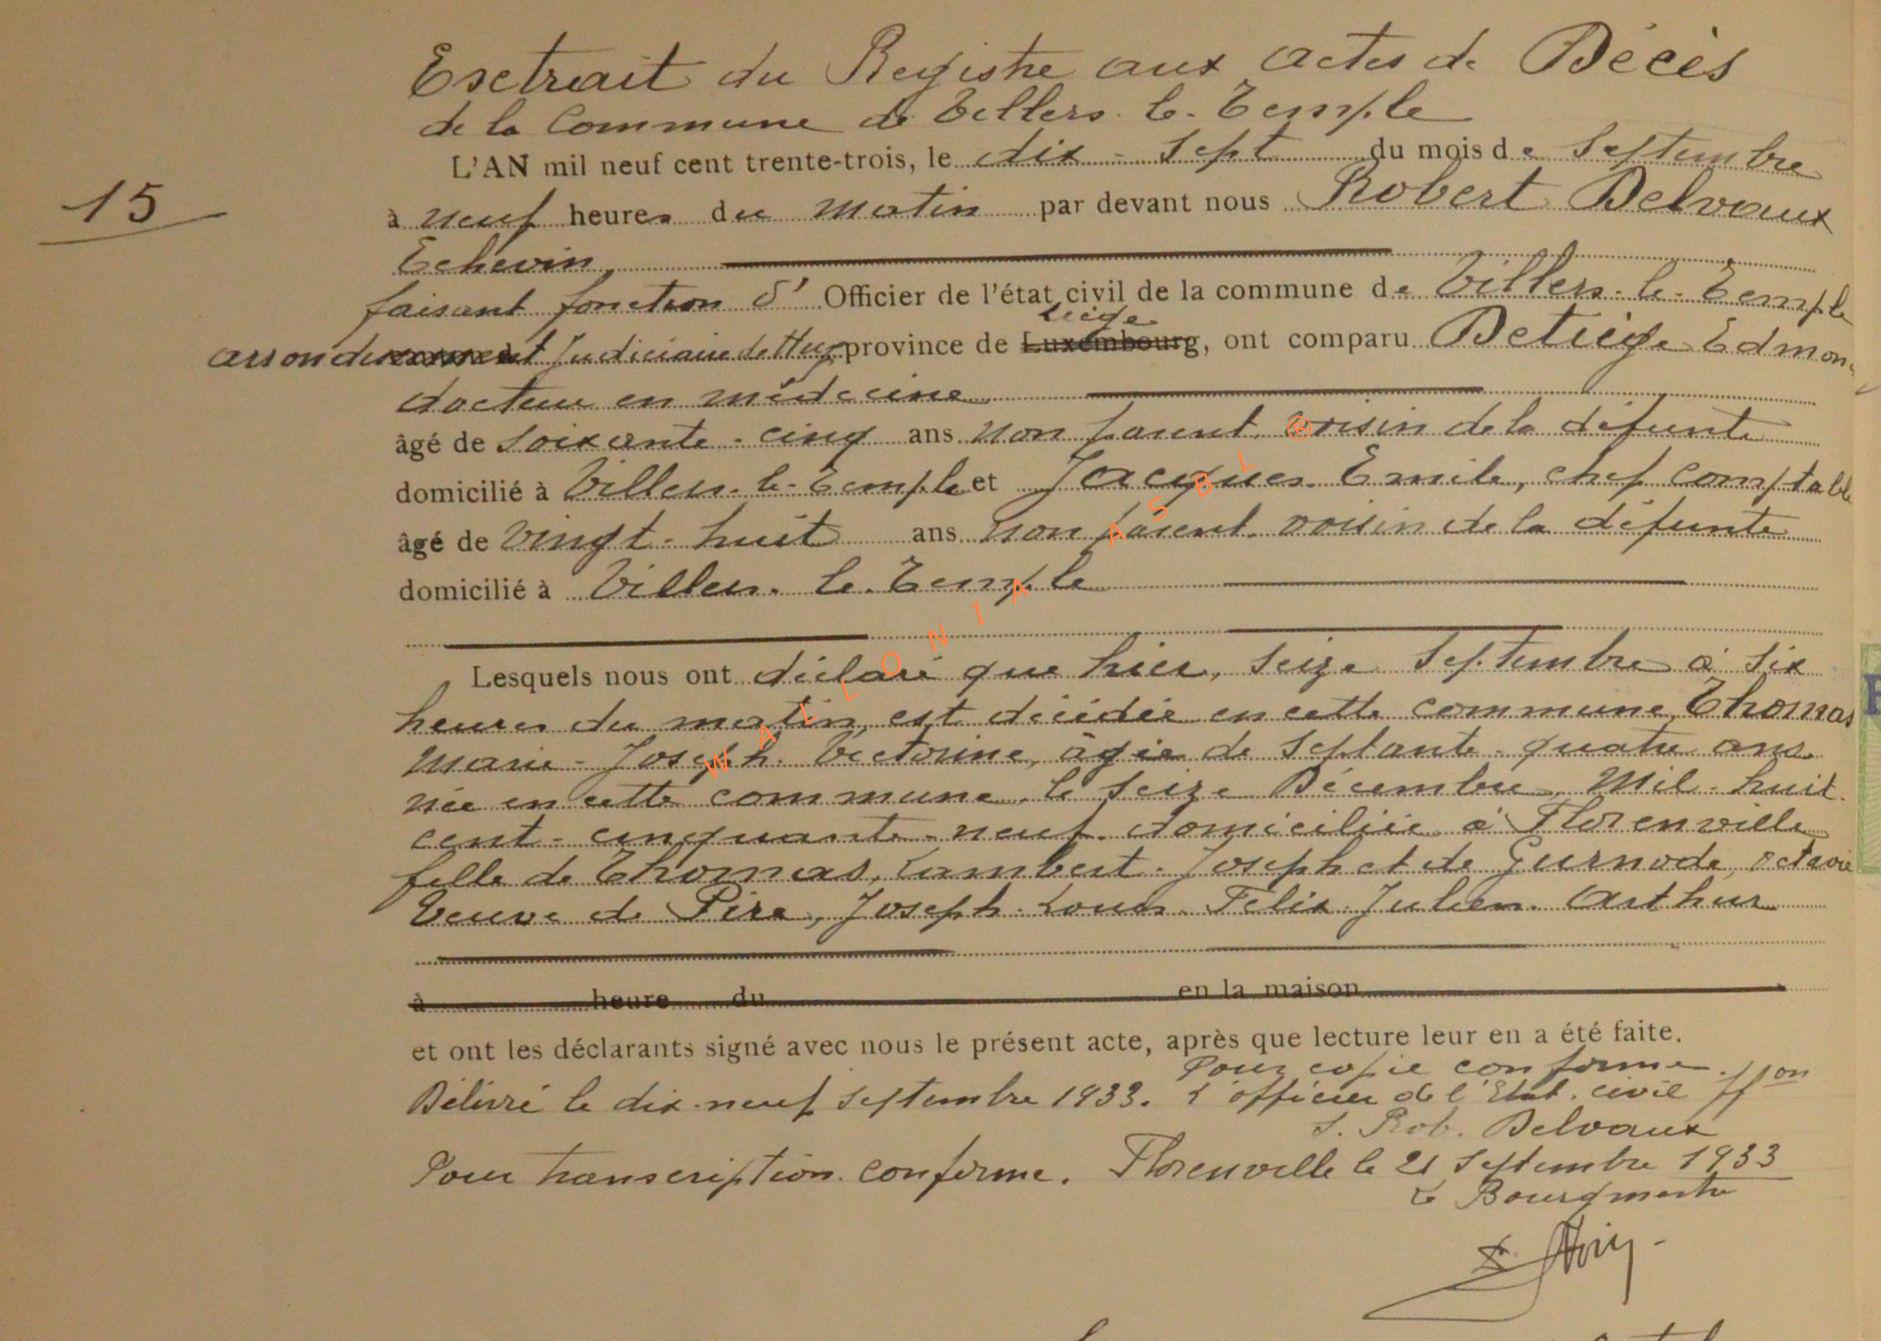 Esctrait du Registre aux actes de Décès
de la Commune de Villers-le-Temple
L'AN mil neuf cent trente-trois, le dix-sept du mois de Septembre
15
à neuf heures du matin par devant nous Robert Delvaux
Echevin
faisant fonction d' Officier de l'état civil de la commune de Villers-le-Temple
Liège
arrondissement Judiciaire de Huy province de Luxembourg, ont comparu Detiège Edmon
docteur en médecine
âgé de soixante-cinq ans non parent voisin de la défunte
domicilié à Villers-le-Temple et Jacques Emile, chef comptable
âgé de vingt-huit ans non parent voisin de la défunte
domicilié à Villers-le-Temple
Lesquels nous ont déclaré que hier, seize Septembre à six
heures du matin, est décédée en cette commune, Thomas
Marie-Joseph-Victorine, âgée de septante-quatre ans
née en cette commune, le seize Décembre, mil-huit-
cent-cinquante-neuf, domiciliée à Florenville
fille de Thomas, Lambert-Joseph et de Gurnode, Octavie
Veuve de Pire, Joseph-Louis-Felix-Julien-Arthur
à heure du en la maison
et ont les déclarants signé avec nous le présent acte, après que lecture leur en a été faite.
Pour copie conforme.
Délivré le dix-neuf septembre 1933. L'officier de l'Etat-civil ffon
s. Rob. Delvaux
Pour transcription conforme. Florenville le 21 Septembre 1933
Le Bourgmestre
WALLONIA ASBL ©